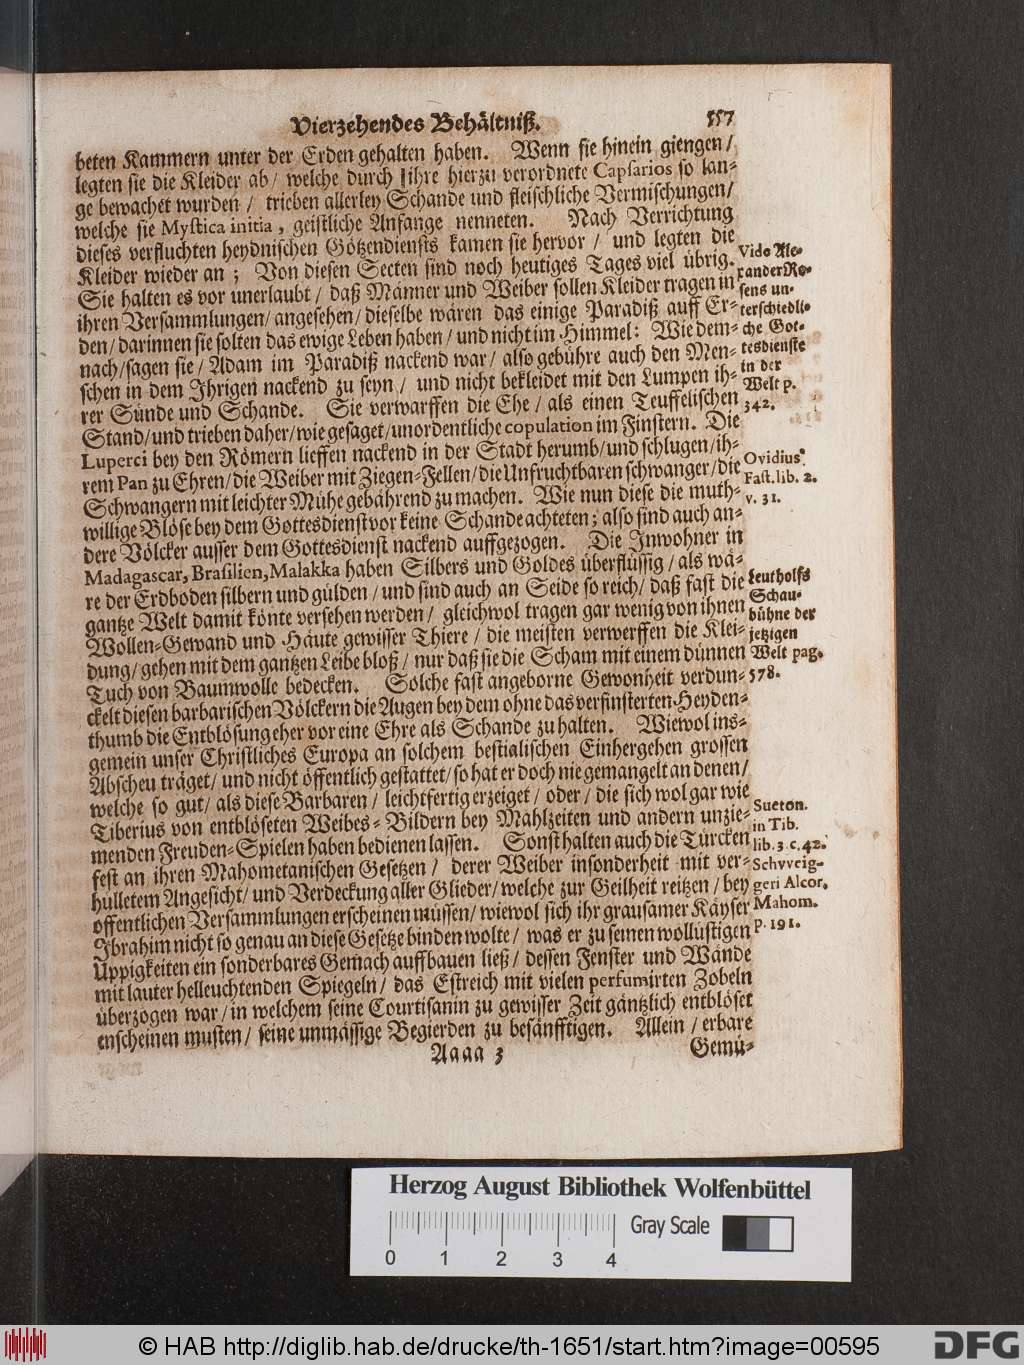 Vierzehendes Behältniß. 557
beten Kammern unter der Erden gehalten haben. Wenn sie hinein giengen/
legten sie die Kleider ab/ welche durch ihre hierzu verordnete Capsarios so lan-
ge bewachet wurden/ trieben allerley Schande und fleischliche Vermischungen/
welche sie Mystica initia, geistliche Anfange nenneten. Nach Verrichtung
dieses verfluchten heydnischen Götzendiensts kamen sie hervor/ und legten die
Kleider wieder an; Von diesen Secten sind noch heutiges Tages viel übrig.
Sie halten es vor unerlaubt/ daß Männer und Weiber sollen Kleider tragen in
ihren Versammlungen/ angesehen/ dieselbe wären das einige Paradiß auff Er-
den/ darinnen sie solten das ewige Leben haben/ und nicht im Himmel: Wie dem-
nach/ sagen sie/ Adam im Paradiß nackend war/ also gebühre auch den Men-
schen in dem Ihrigen nackend zu seyn/ und nicht bekleidet mit den Lumpen ih-
rer Sünde und Schande. Sie verwarffen die Ehe/ als einen Teuffelischen
Stand/ und trieben daher/ wie gesaget/ unordentliche copulation im Finstern. Die
Luperci bey den Römern lieffen nackend in der Stadt herumb/ und schlugen/ ih-
rem Pan zu Ehren/ die Weiber mit Ziegen-Fellen/ die Unfruchtbaren schwanger/ die
Schwangern mit leichter Mühe gebährend zu machen. Wie nun diese die muth-
willige Blöse bey dem Gottesdienst vor keine Schande achteten; also sind auch an-
dere Völcker ausser dem Gottesdienst nackend auffgezogen. Die Inwohner in
Madagascar, Brasilien, Malakka haben Silbers und Goldes überflüssig/ als wä-
re der Erdboden silbern und gülden/ und sind auch an Seide so reich/ daß fast die
gantze Welt damit könte versehen werden/ gleichwol tragen gar wenig von ihnen
Wollen-Gewand und Häute gewisser Thiere/ die meisten verwerffen die Klei-
dung/ gehen mit dem gantzen Leibe bloß/ nur daß sie die Scham mit einem dünnen
Tuch von Baumwolle bedecken. Solche fast angeborne Gewonheit verdun-
ckelt diesen barbarischen Völckern die Augen bey dem ohne das verfinsterten Heyden-
thumb die Entblösung eher vor eine Ehre als Schande zu halten. Wiewol ins-
gemein unser Christliches Europa an solchem bestialischen Einhergehen grossen
Abscheu träget/ und nicht öffentlich gestattet/ so hat er doch nie gemangelt an denen/
welche so gut/ als diese Barbaren/ leichtfertig erzeiget/ oder/ die sich wol gar wie
Tiberius von entblöseten Weibes-Bildern bey Mahlzeiten und andern unzie-
menden Freuden-Spielen haben bedienen lassen. Sonst halten auch die Türcken
fest an ihren Mahometanischen Gesetzen/ derer Weiber insonderheit mit ver-
hülletem Angesicht/ und Verdeckung aller Glieder/ welche zur Geilheit reitzen/ bey
offentlichen Versammlungen erscheinen müssen/ wiewol sich ihr grausamer Käyser
Ibrahim nicht so genau an diese Gesetze binden wolte/ was er zu seinen wollüstigen
Uppigkeiten ein sonderbares Gemach auffbauen ließ/ dessen Fenster und Wände
mit lauter helleuchtenden Spiegeln/ das Estreich mit vielen perfumirten Zobeln
überzogen war/ in welchem seine Courtisanin zu gewisser Zeit gäntzlich entblöset
enscheinen musten/ seine unmässige Begierden zu besänfftigen. Allein/ erbare
Aaaa 3 Gemü-
Vide Ale-
xander Ro-
sens un-
terschiedli-
che Got-
tesdienste
in der
Welt p.
342.
Ovidius
Fast. lib. 2.
v. 31.
Leutholfs
Schau-
bühne der
jetzigen
Welt pag.
578.
Sueton.
in Tib.
lib. 3 c. 42.
Schvveig-
geri Alcor.
Mahom.
p. 191.
Herzog August Bibliothek Wolfenbüttel
Gray Scale
0 1 2 3 4
© HAB http://diglib.hab.de/drucke/th-1651/start.htm?image=00595
DFG